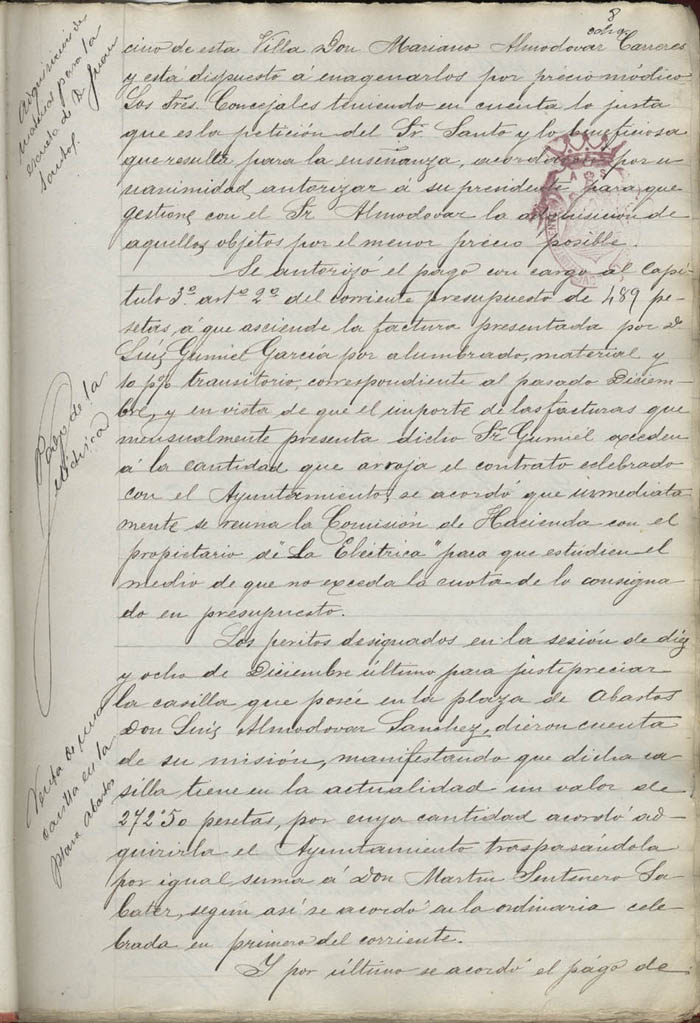 8
ocho
cino de esta Villa Don Mariano Almodovar Carreres
y está dispuesto á enagenarlos por précio módico
Los Sres. Concejales teniendo en cuenta lo justa
que es la petición del Sr. Santo y lo beneficiosa
que resulta para la enseñanza, acordaron por u
nanimidad, autorizar á su presidente para que
gestione con el Sr Almodovar la adquisición de
aquellos objetos por el menor précio posible.
Se autorizó el pago con cargo al Capi
tulo 3º artº 2º del corriente presupuesto de 489 pe
setas, á que asciende la factura presentada por D
Luis Gumiel García por alumbrado, material y
10 p% transitorio, correspondiente al pasado Diciem
bre, y en vista de que el importe de las facturas que
mensualmente presenta dicho Sr Gumiel exceden
á la cantidad que arroja el contrato celebrado
con el Ayuntamiento, se acordó que inmediata
mente se reuna la Comisión de Hacienda con el
propietario de "La Eléctrica" para que estudien el
medio de que no exceda la cuota de lo consigna
do en presupuesto.
Los peritos designados en la sesión de diez
y ocho de Diciembre último para justipreciar
la casilla que poseé en la plaza de Abastos
Don Luis Almodovar Sanchez, dieron cuenta
de su misión, manifestando que dicha ca
silla tiene en la actualidad un valor de
272'50 pesetas, por cuya cantidad acordó ad-
quirirla el Ayuntamiento traspasándola
por igual suma á Don Martin Sentenero Sa
bater, segun así se acordó en la ordinaria cele
brada en primero del corriente.
Y por último se acordó el págo de
Adquisicion de
para la
escuela de D. Juan
Santo
Pago de la
eléctrica
Venta de una
casilla en la
plaza abastos